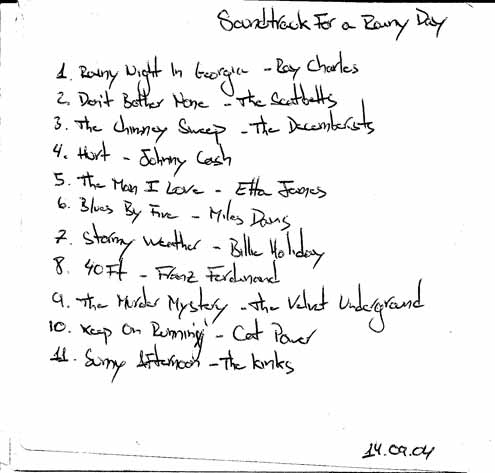 Soundtrack For a Rainy Day
1. Rainy Night In Georgia - Ray Charles
2. Don't Bother None - The Seatbelts
3. The Chimney Sweep - The Decemberists
4. Hurt - Johnny Cash
5. The Man I Love - Etta James
6. Blues By Five - Miles Davis
7. Stormy Weather - Billie Holiday
8. 40 Ft - Franz Ferdinand
9. The Murder Mystery - The Velvet Underground
10. Keep On Running - Cat Power
11. Sunny Afternoon - The Kinks
14.09.04